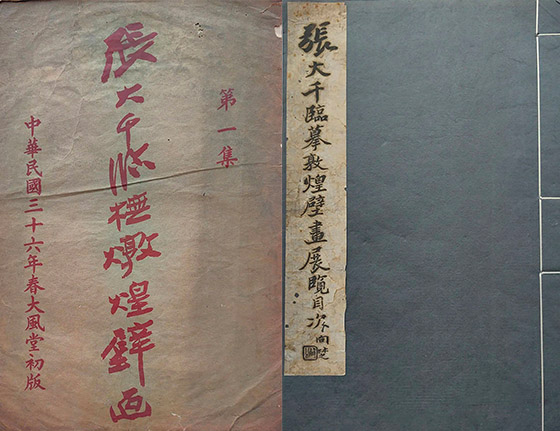 第一集
張大千臨橅燉煌壁画
中華民國三十六年春大風堂初版
張大千臨摹敦煌壁畫展覽目次